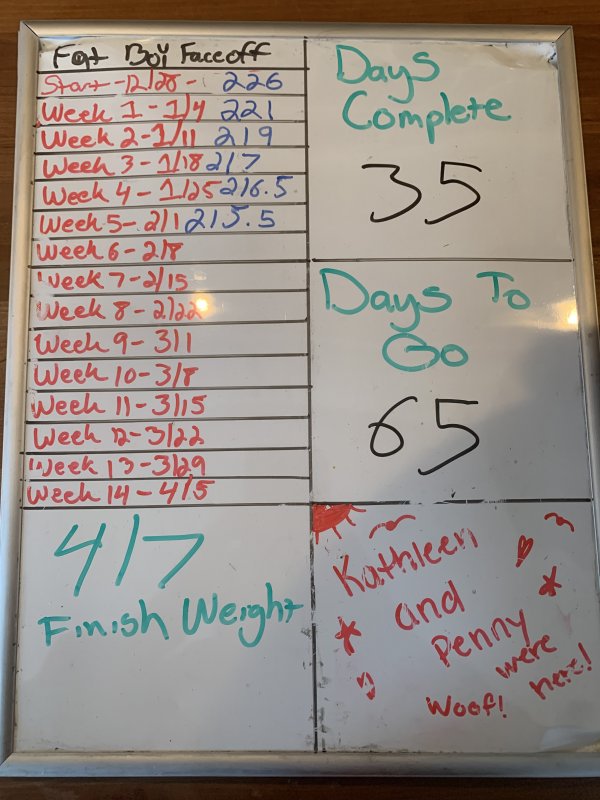 Fat Boy Faceoff
Start - 12/28 - 226
Week 1 - 1/4 221
Week 2 - 1/11 219
Week 3 - 1/18 217
Week 4 - 1/25 216.5
Week 5 - 2/1 215.5
Week 6 - 2/8
Week 7 - 2/15
Week 8 - 2/22
Week 9 - 3/1
Week 10 - 3/8
Week 11 - 3/15
Week 12 - 3/22
Week 13 - 3/29
Week 14 - 4/5
4/7
Finish Weight
Days
Complete
35
Days To
Go
65
Kathleen
and
Penny
were
here!
Woof!